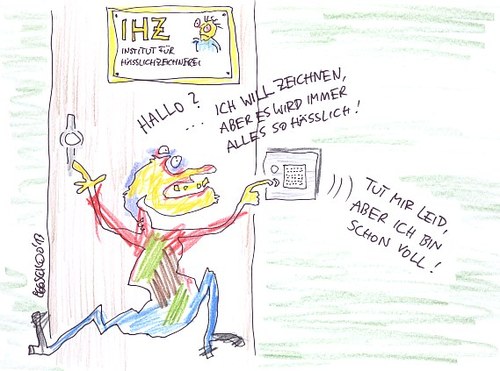 IHZ
INSTITUT FÜR
HÄSSLICHZEICHNEREI
HALLO?
.... ICH WILL ZEICHNEN,
ABER ES WIRD IMMER
ALLES SO HÄSSLICH!
TUT MIR LEID,
ABER ICH BIN
SCHON VOLL!